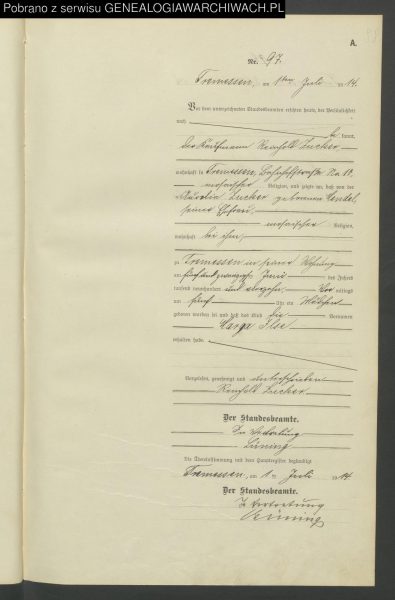 Pobrano z serwisu GENEALOGIAWARCHIWACH.PL
A.
Nr. 97.
Tremessen, am 1ten Juli 1914.
Vor dem unterzeichneten Standesbeamten erschien heute, der Persönlichkeit
nach
be kannt,
der Kaufmann Reinhold Zucker,
wohnhaft in Tremessen, Bahnhofstraße No 10.
mosaischer Religion, und zeigte an, daß von der
Zucker geborenen Henkel,
seiner Ehefrau,
mosaischer Religion,
wohnhaft bei ihm,
zu Tremessen in seiner Wohnung
am fünfundzwanzigsten Juni des Jahres
tausend neunhundert und vierzehn, Vor mittags
um fünf Uhr ein Mädchen
geboren worden sei und daß das Kind die Vornamen
Marga Ilse
erhalten habe.
Vorgelesen, genehmigt und unterschrieben
Reinhold Zucker.
Der Standesbeamte.
In Vertretung
Lüning
Die Übereinstimmung mit dem Hauptregister beglaubigt
Tremessen, am 1. Juli 1914
Der Standesbeamte.
In Vertretung
Lüning